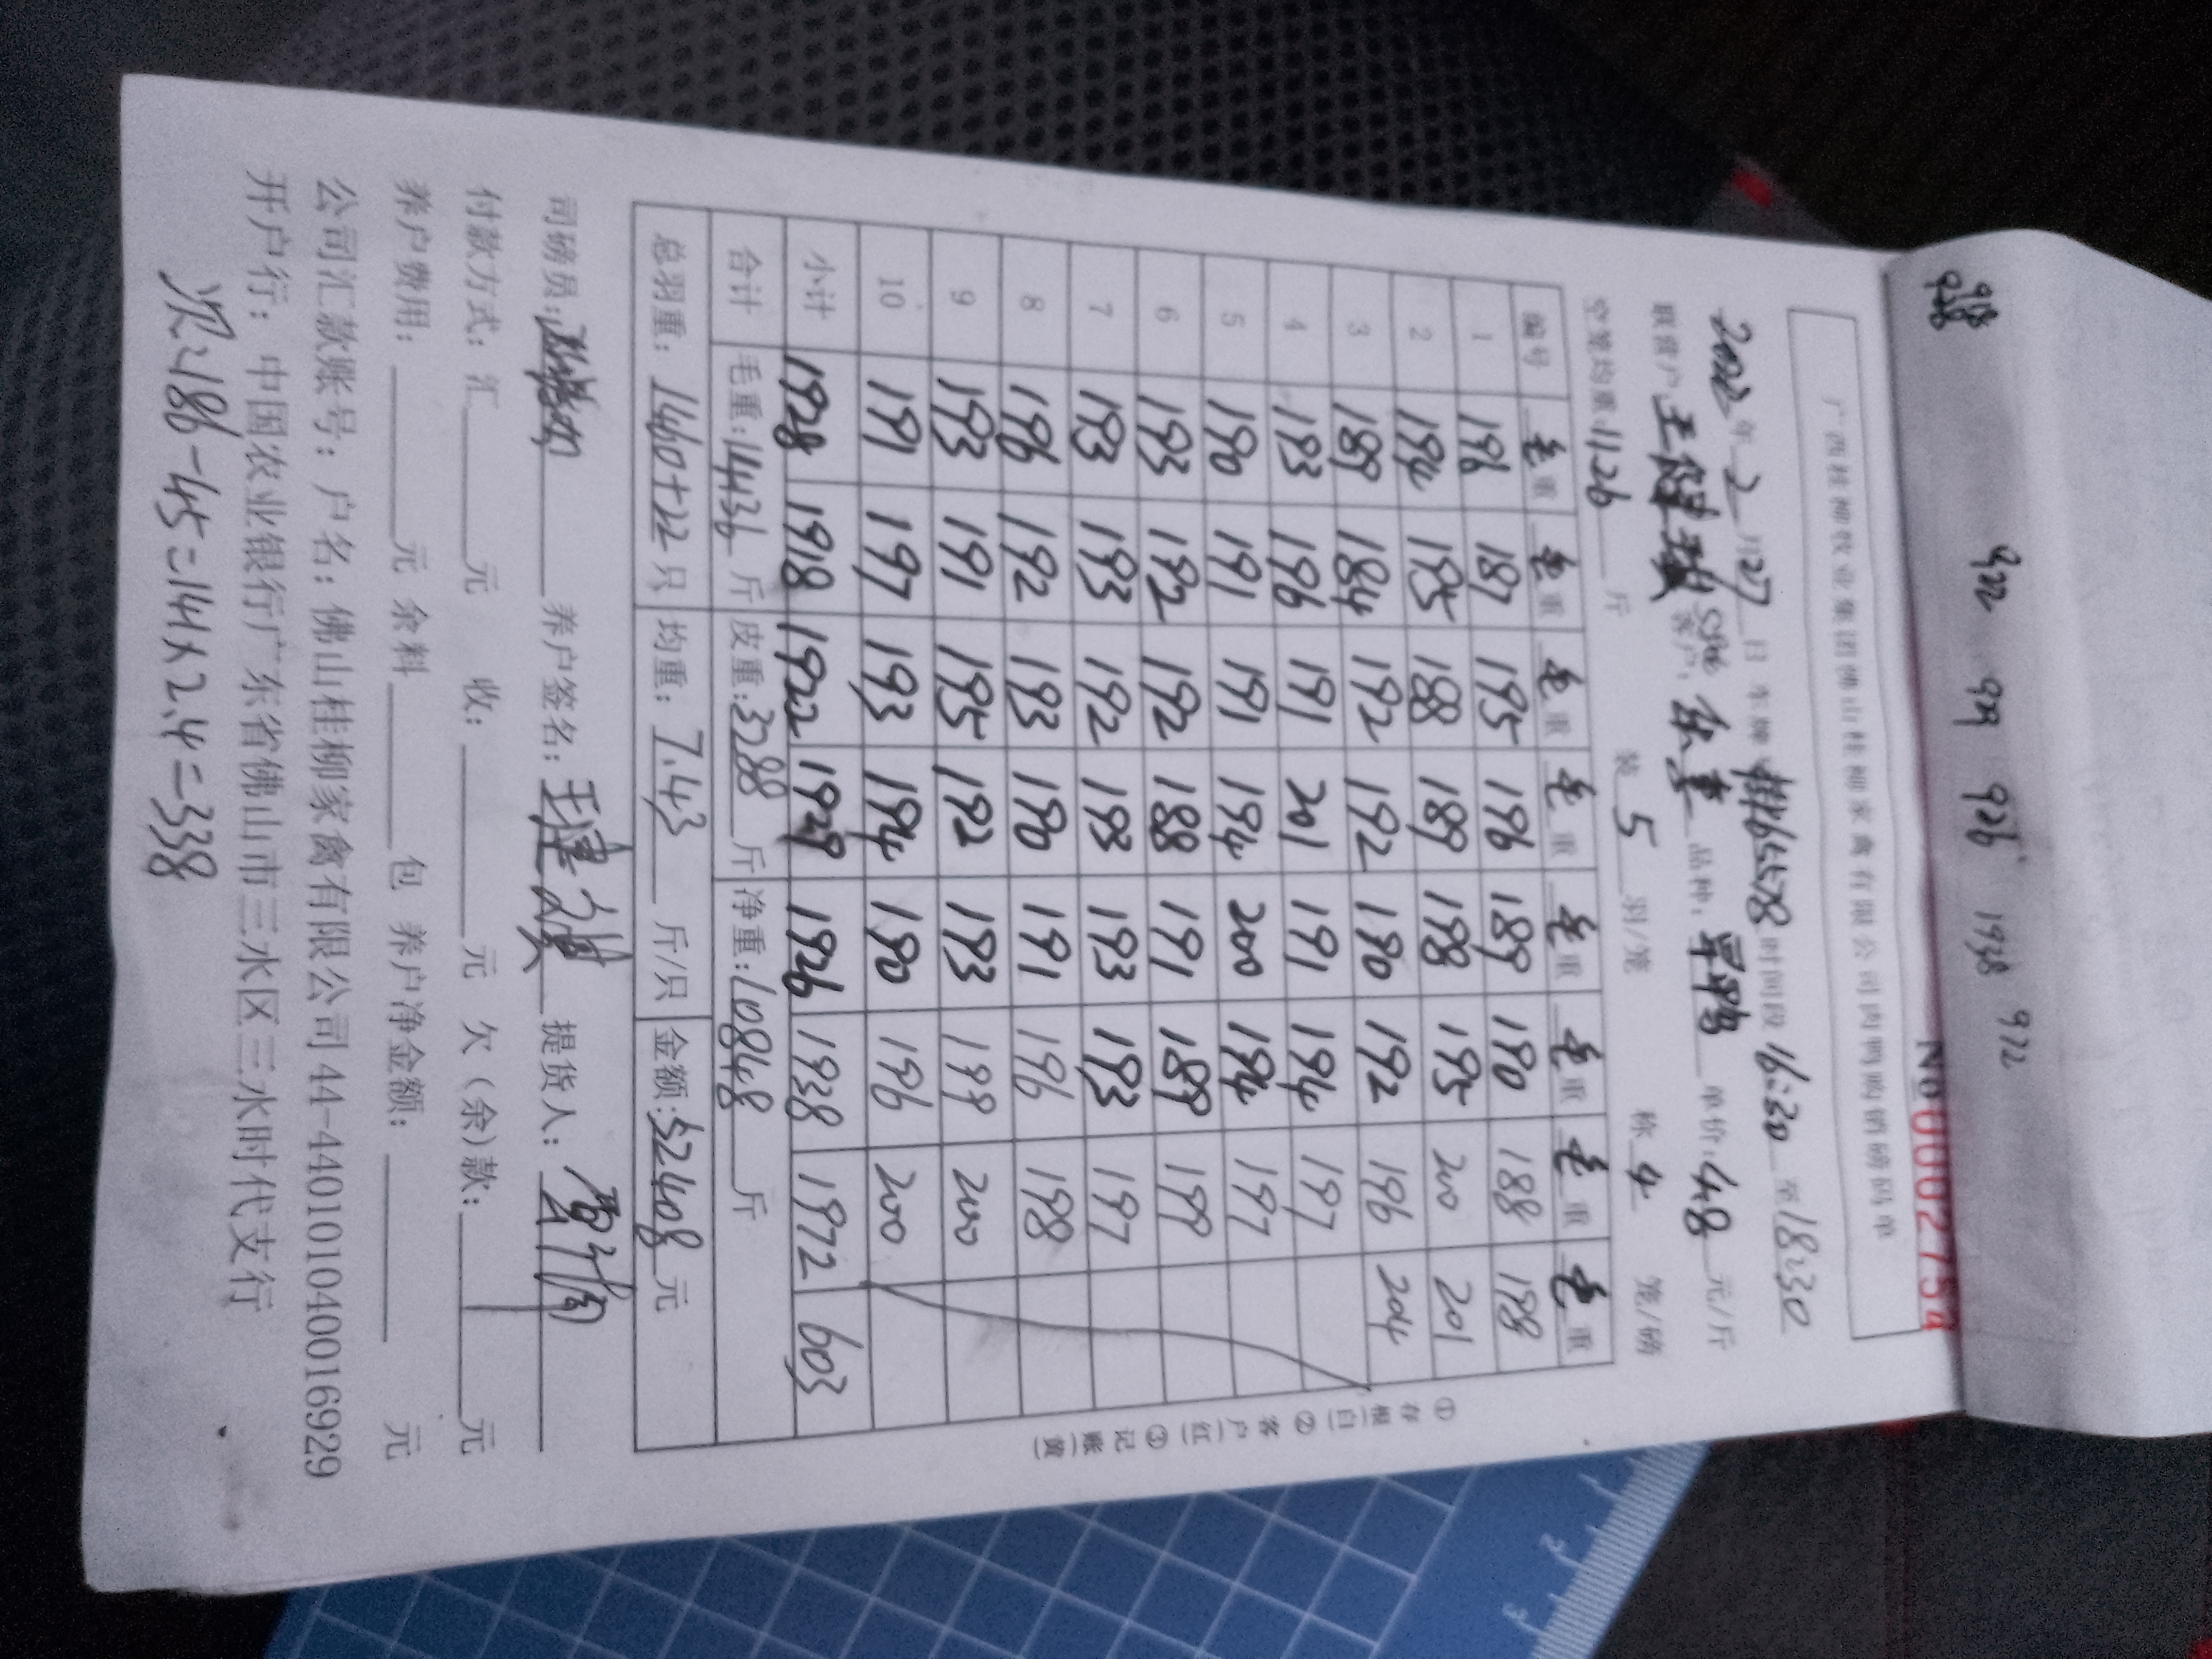 918
928 922 929 926 1938 972
№0002754
广西桂柳牧业集团佛山桂柳家禽有限公司肉鸭购销磅码单
2022年2月27日 车牌 时间段16:30至18:30
联营户: 客户: 品种: 单价:4.8元/斤
空笼均重:11.26斤 装5羽/笼 称4笼/磅
编号 毛重 毛重 毛重 毛重 毛重 毛重 毛重 毛重
1 196 187 195 196 189 190 188 198
2 194 195 188 189 198 195 200 201
3 189 184 192 192 190 192 196 204
4 193 196 191 201 191 194 197
5 190 191 191 194 200 194 197
6 193 192 192 188 191 189 199
7 193 193 192 193 193 193 197
8 196 192 193 190 191 196 198
9 193 191 195 192 193 199 200
10 191 197 193 194 190 196 200
小计 1928 1918 1922 1929 1926 1938 1972 603
合计 毛重:14136斤 皮重:3288斤 净重:10848斤
总羽重: 1460+22只 均重: 7.43斤/只 金额:52408元
①存根(白)②客户(红)③记账(黄)
司磅员: 养户签名: 提货人:
付款方式: 汇 元 收: 元 欠(余)款: 元
养户费用: 元 余料 包 养户净金额: 元
公司汇款账号: 户名: 佛山桂柳家禽有限公司 44-440101040016929
开户行: 中国农业银行广东省佛山市三水区三水时代支行
次:186-45=141×2.4=338